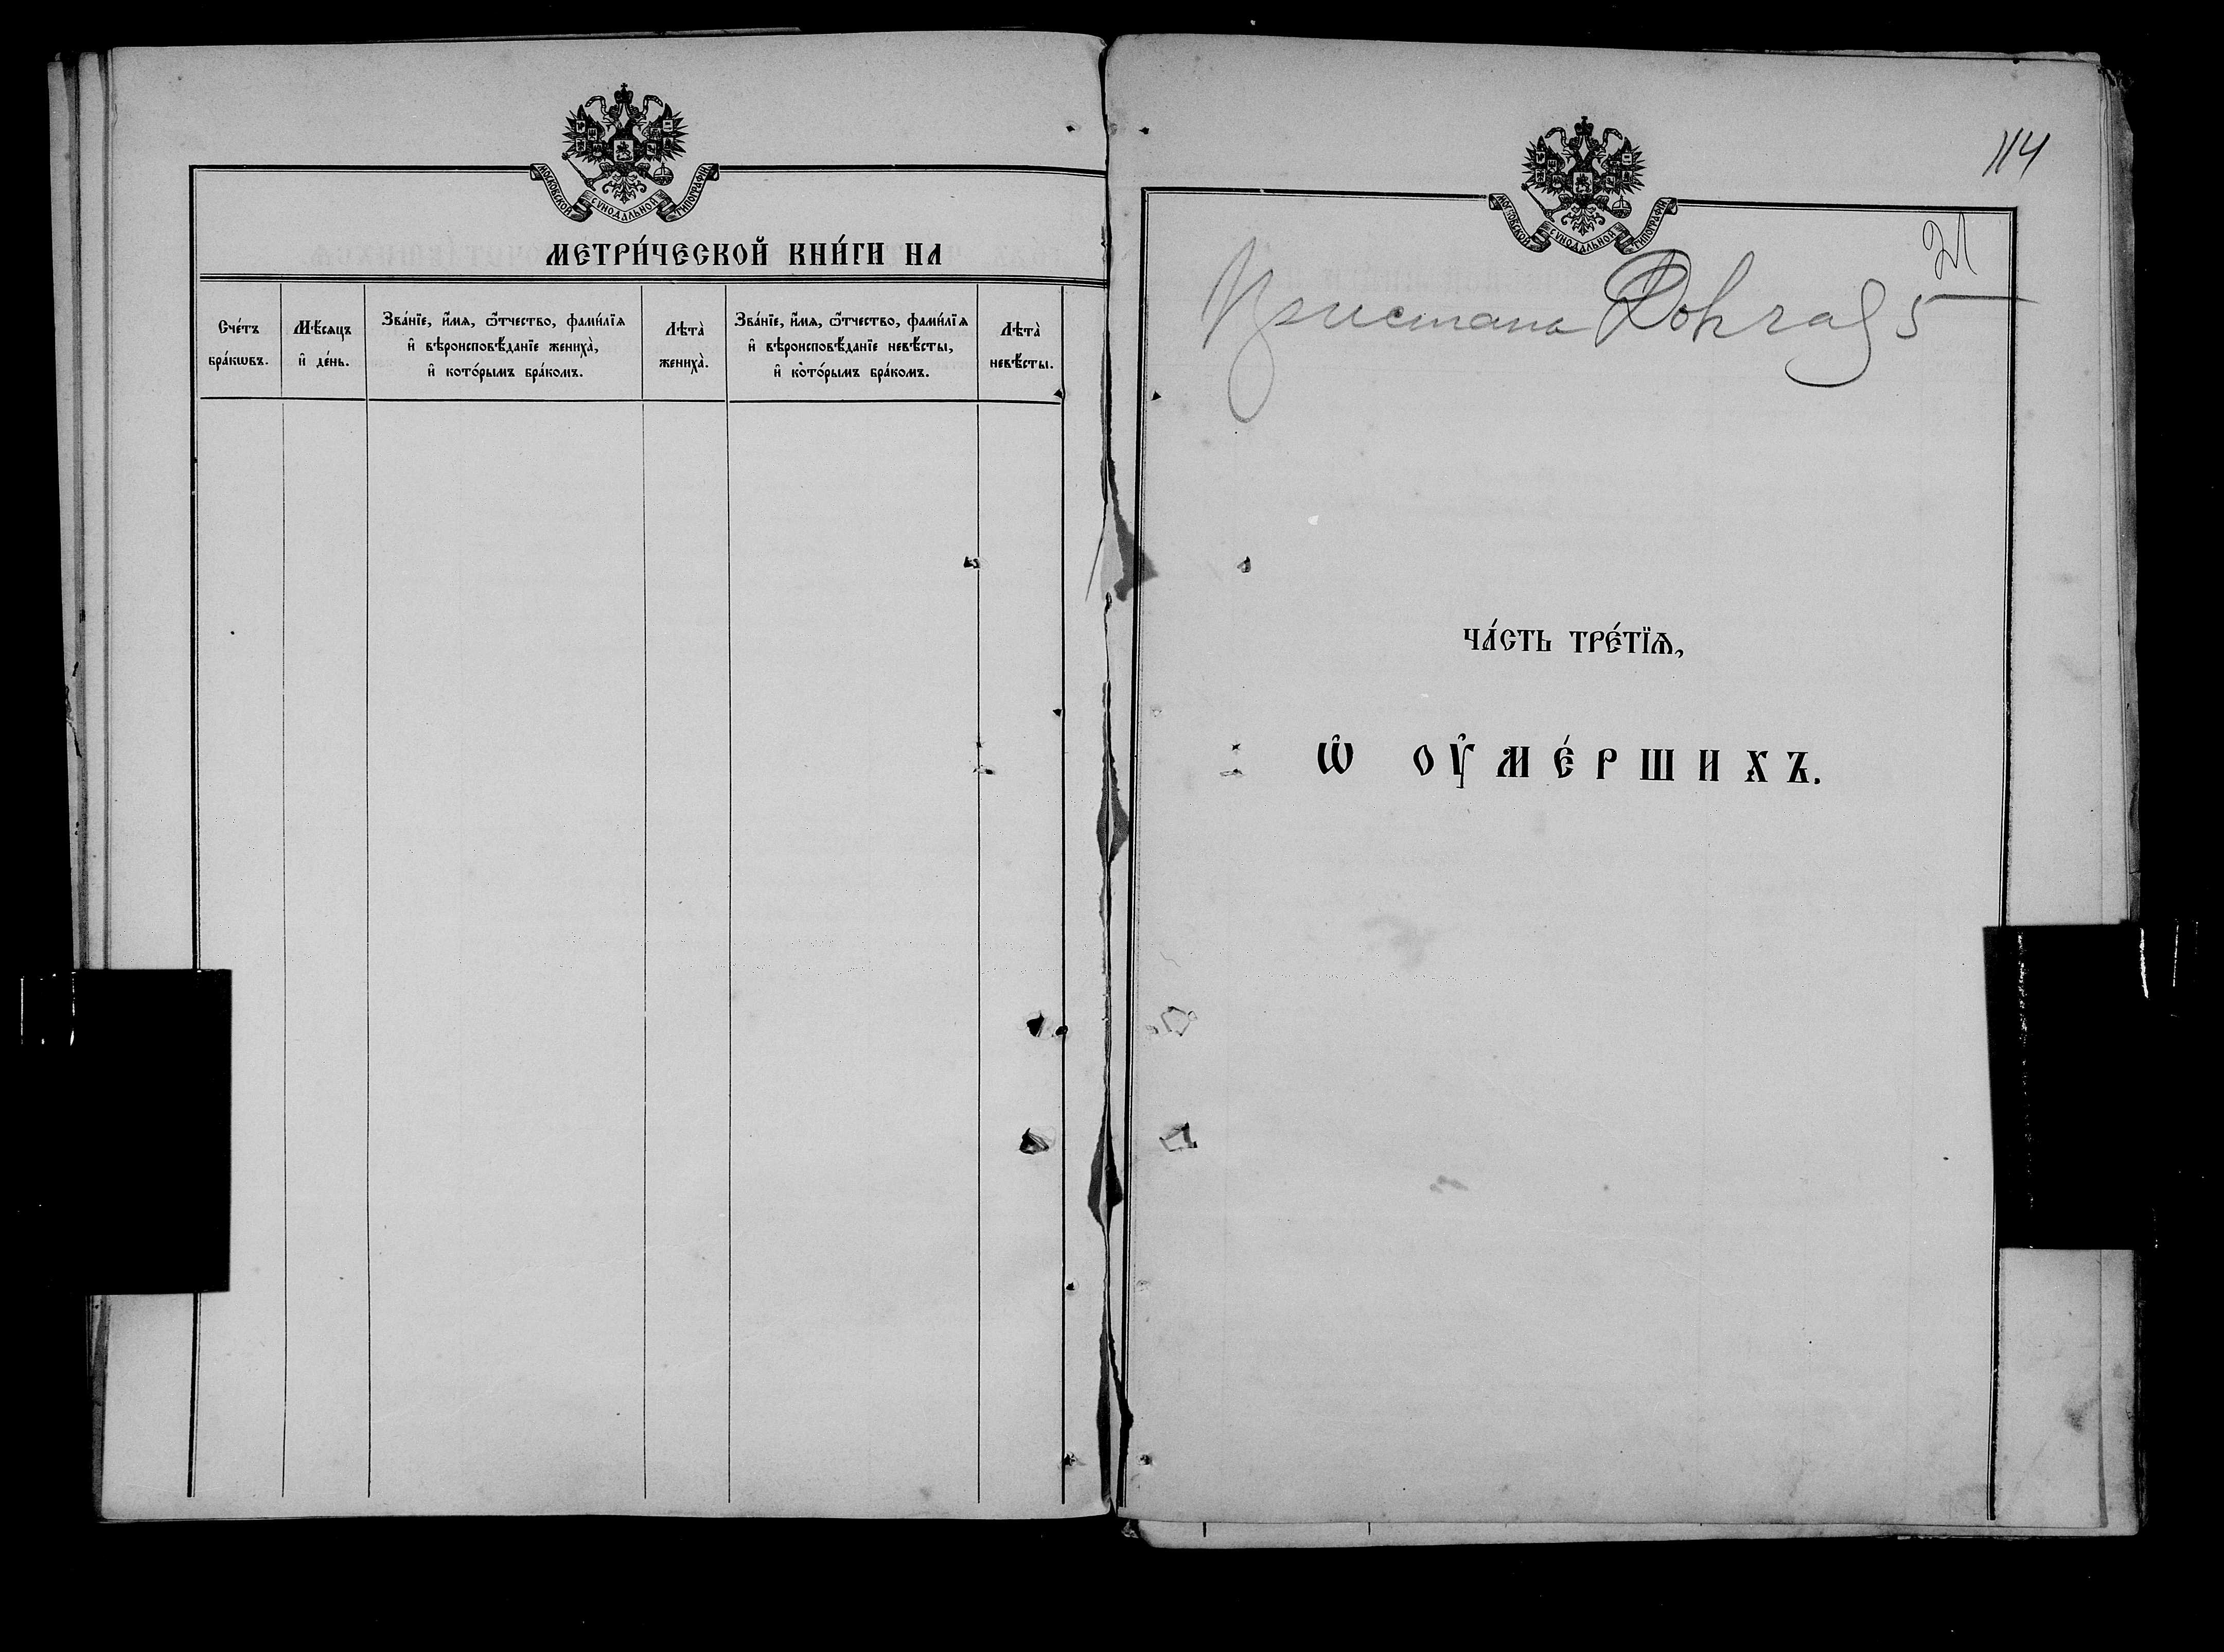 МОСКОВСКОЙ СУНОДАЛЬНОЙ ТИПОГРАФІИ
МЕТРИ́ЧЕСКОЙ КНИ́ГИ НА
Сче́тъ бра́кѡвъ.
Мѣ́сяцъ и҆ де́нь.
Зва́нїе, и҆́мѧ, ѻ҆́тчество, фами́лїѧ
и҆ вѣроисповѣ́данїе жениха̀,
и҆ кото́рымъ бра́комъ.
Лѣта̀ жениха̀.
Зва́нїе, и҆́мѧ, ѻ҆́тчество, фами́лїѧ
и҆ вѣроисповѣ́данїе невѣ́сты,
и҆ кото́рымъ бра́комъ.
Лѣта̀ невѣ́сты.
114
МОСКОВСКОЙ СУНОДАЛЬНОЙ ТИПОГРАФІИ
21
5
ЧА́СТЬ ТРЕ́ТЇѦ,
Ѡ҆ ОУ҆МЕ́РШИХЪ.